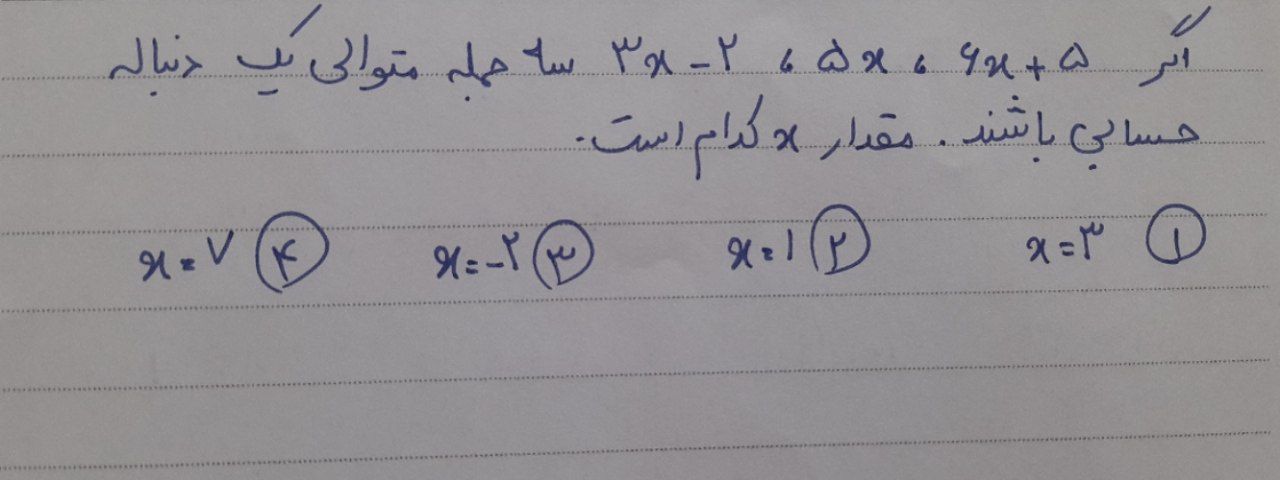 اگر ۳x - ۲ ، ۵x ، ۶x + ۵ سه جمله متوالی یک دنباله
حسابی باشند. مقدار x کدام است.
۱ x = ۳ ۲ x = ۱ ۳ x = -۲ ۴ x = ۷